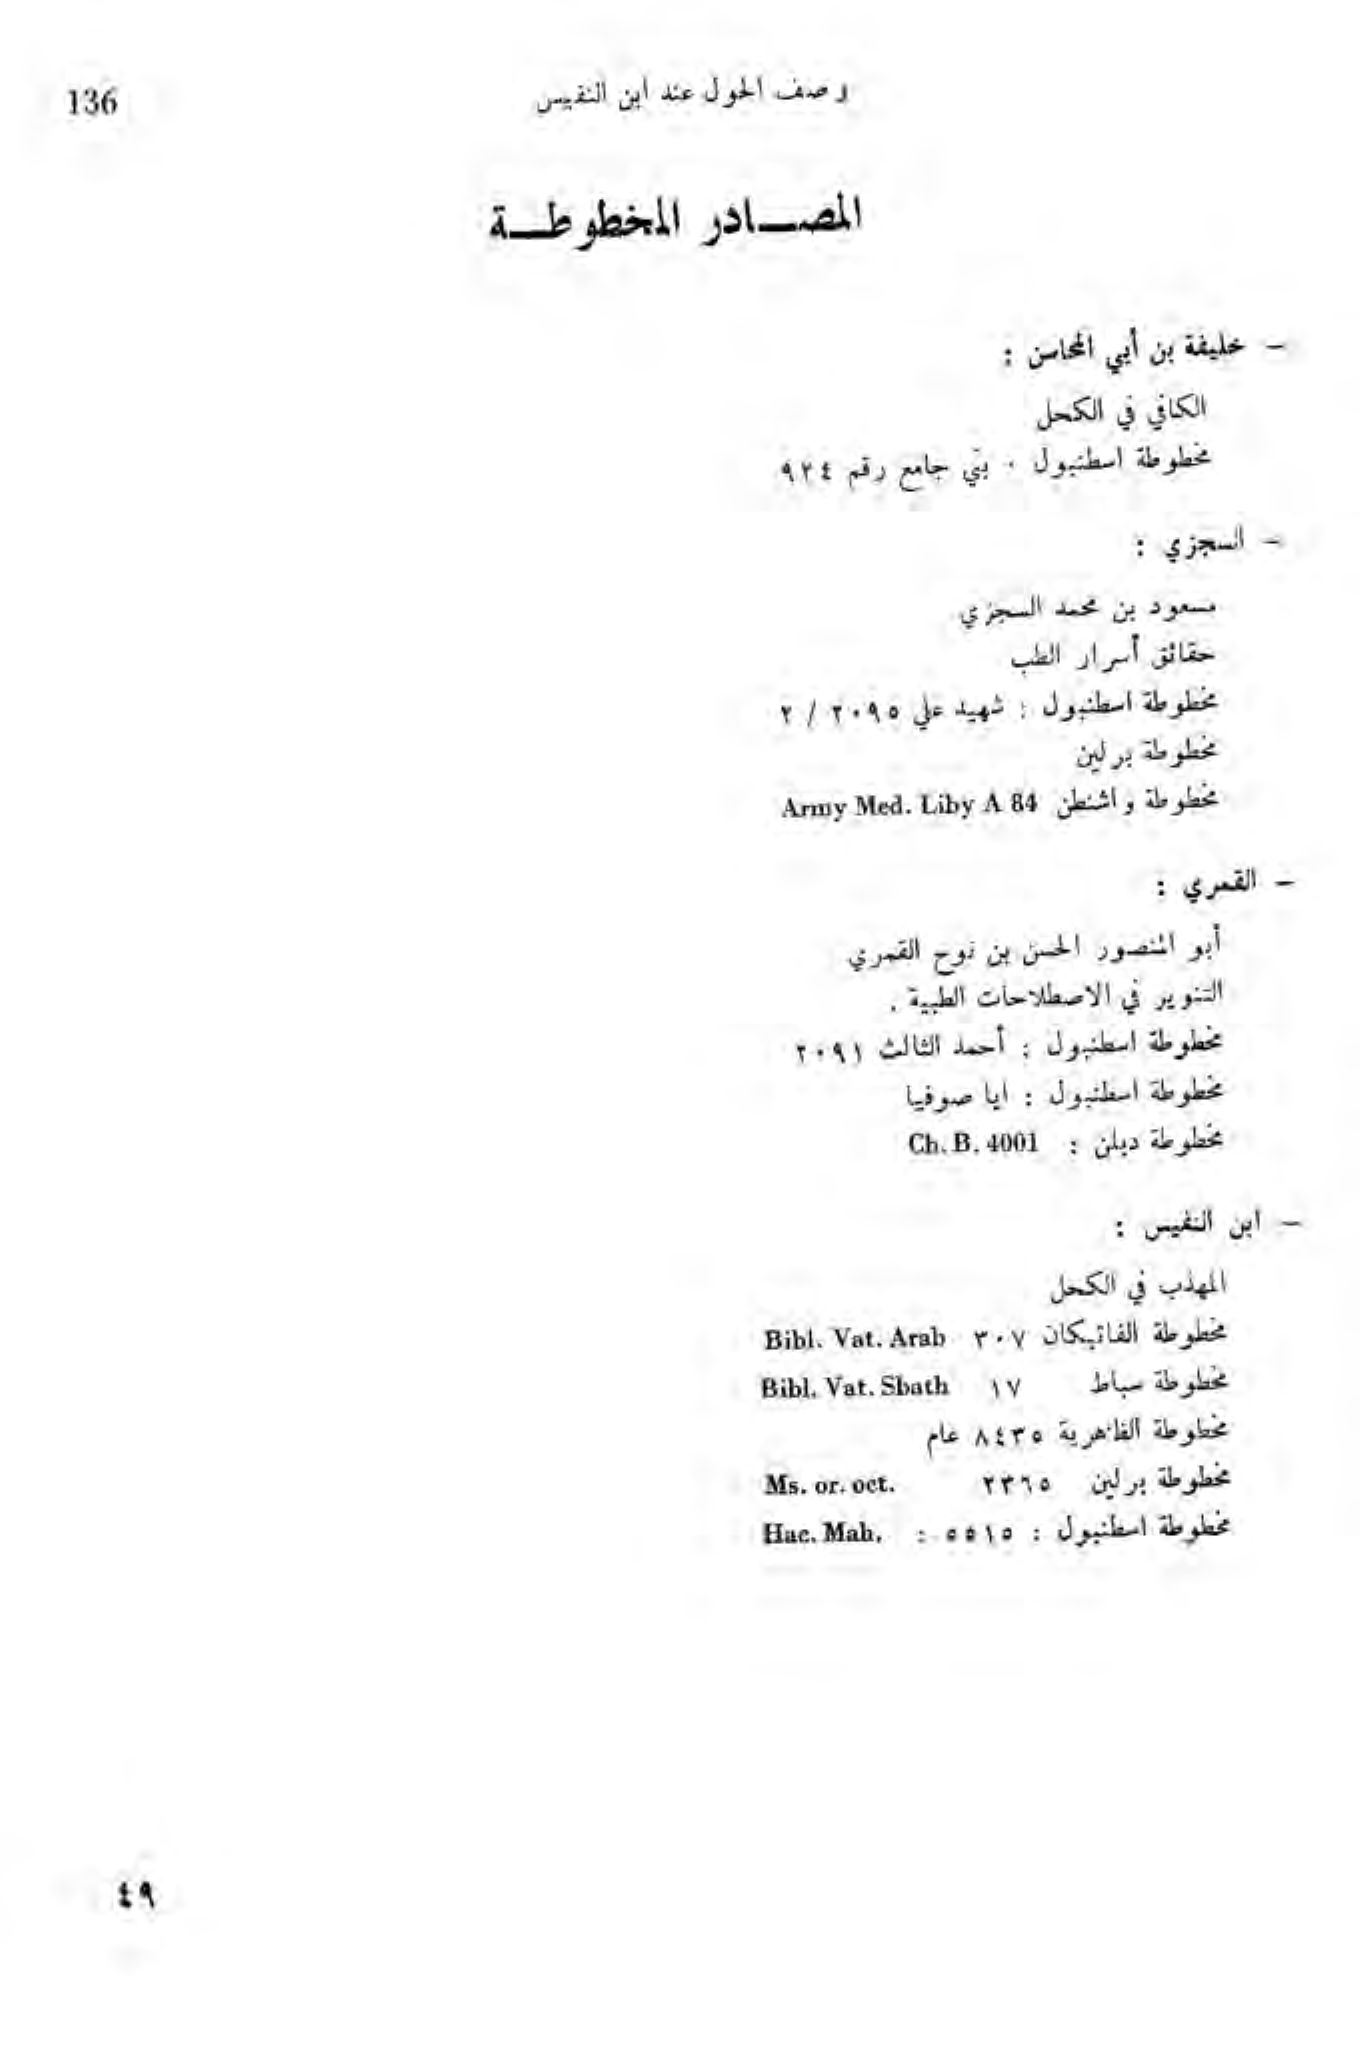 136
وصف الحول عند ابن النفيس
المصادر المخطوطة
– خليفة بن أبي المحاسن :
الكافي في الكحل
مخطوطة اسطنبول . يني جامع رقم ٩٢٤
– السجزي :
مسعود بن محمد السجزي
حقائق أسرار الطب
مخطوطة اسطنبول : شهيد علي ٢٠٩٥ / ٢
مخطوطة برلين
مخطوطة واشنطن Army Med. Liby A 84
– القمري :
أبو المنصور الحسن بن نوح القمري
التنوير في الاصطلاحات الطبية .
مخطوطة اسطنبول : أحمد الثالث ٢٠٩١
مخطوطة اسطنبول : ايا صوفيا
مخطوطة دبلن : Ch. B. 4001
– ابن النفيس :
المهذب في الكحل
مخطوطة الفاتيكان ٣٠٧ Bibl. Vat. Arab
مخطوطة سباط ١٧ Bibl. Vat. Sbath
مخطوطة الظاهرية ٨٤٣٥ عام
مخطوطة برلين ٢٣٦٥ Ms. or. oct.
مخطوطة اسطنبول : ٥٥١٥ : Hac. Mah.
٤٩